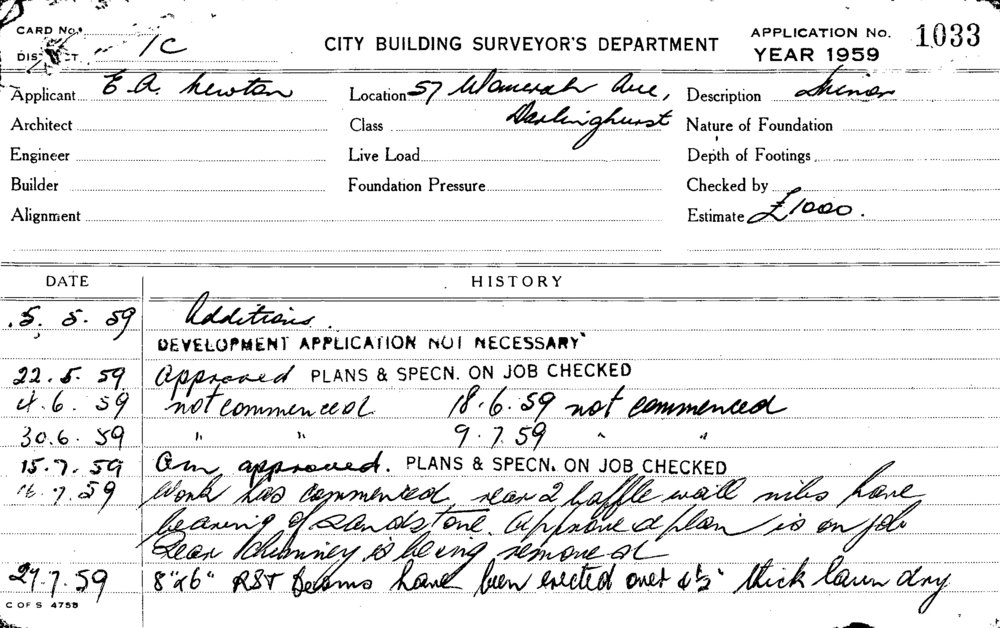 CARD No.
DISTRICT 1C
CITY BUILDING SURVEYOR'S DEPARTMENT
APPLICATION No. 1033
YEAR 1959
Applicant E. A. Newton
Location 57 Womerah Ave,
Description Minor
Architect
Class Darlinghurst
Nature of Foundation
Engineer
Live Load
Depth of Footings
Builder
Foundation Pressure
Checked by
Alignment
Estimate £1000.
DATE HISTORY
5. 5. 59 Additions.
DEVELOPMENT APPLICATION NOT NECESSARY
22. 5. 59 Approved PLANS & SPECN. ON JOB CHECKED
4. 6. 59 not commenced 18. 6. 59 not commenced
30. 6. 59 " " 9. 7. 59 " "
15. 7. 59 approved. PLANS & SPECN. ON JOB CHECKED
16. 7. 59 Work has commenced, rear 2 baffle wall nibs have
bearing of sandstone. Approved plan is on job
Rear chimney is being removed
29. 7. 59 8" x 6" RST Beams have been erected over 4½" thick
C OF S 4758